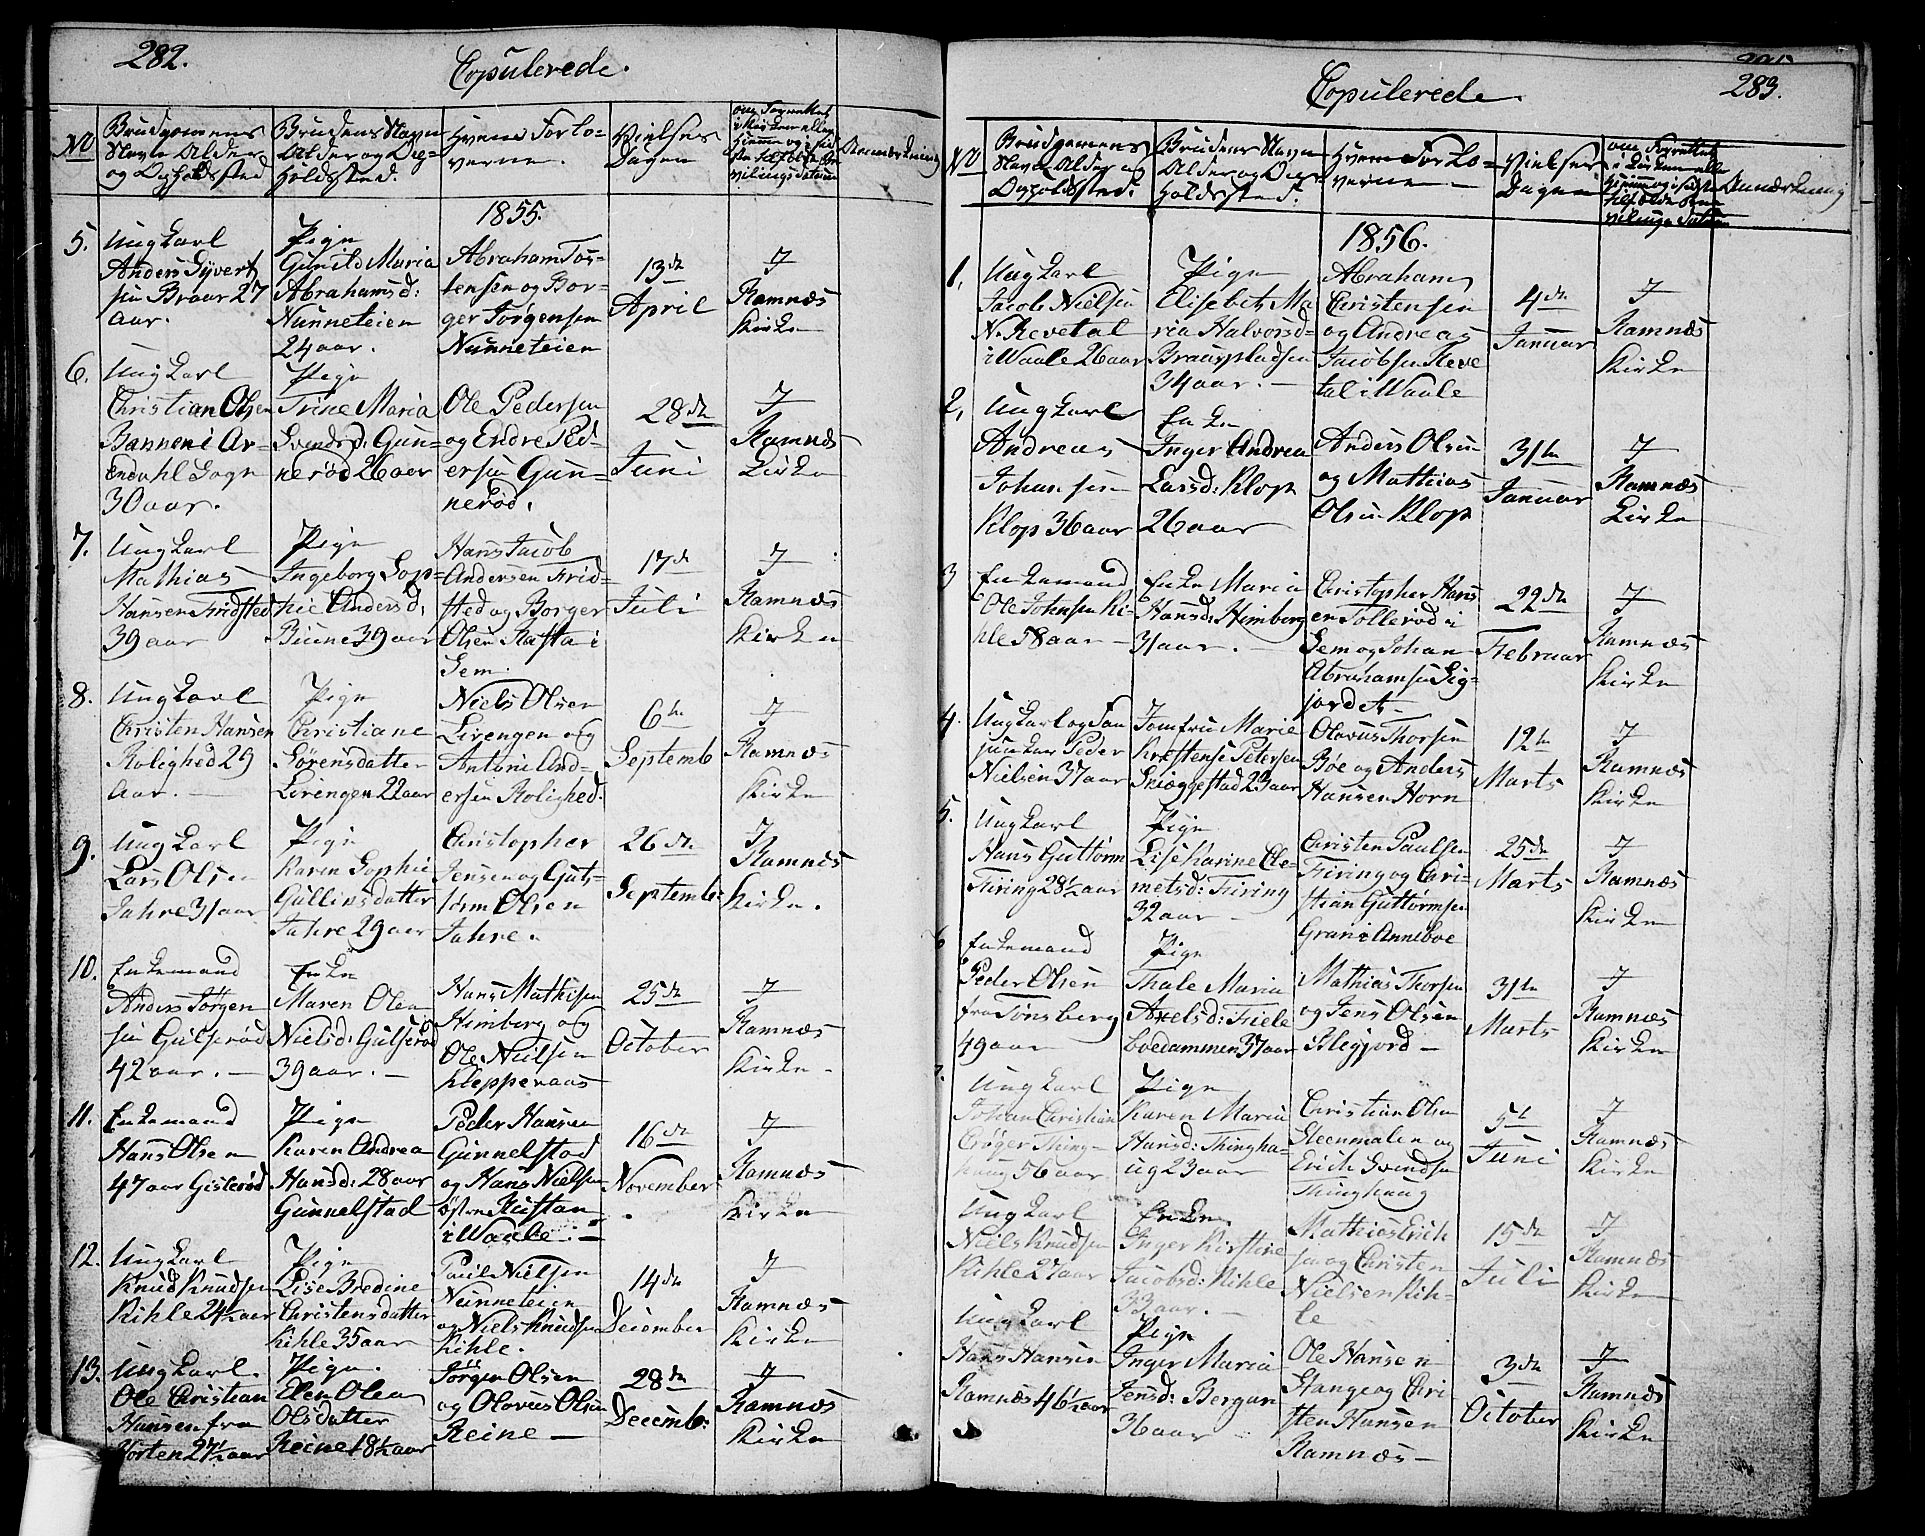 282.
Copulerede.
No
Brudgomens
Navn Alder
og Opholdssted
Brudens Navn
Alder og Op=
holdssted.
Hvem Forlo=
verne.
Vielses
Dagen
Anmærkning
1855.
5.
Ungkarl
Anders Syvert
sen Braar 27
aar.
Pige
Gunild Maria
Abrahamsd:
Nunneteien
24 aar.
Abraham Tos=
tensen og Bor=
ger Jørgensen
Nunneteien
13de
April
I
Ramnæs
Kirke
6.
Ungkarl
Christian Olsen
Bannen i Ar=
endahl Sogn
30 aar.
Pige
Trine Maria
Svendsd: Gun=
nerød 26 aar
Ole Pedersen
og Endre Ped=
ersen Gun=
nerød.
28de
Juni
I
Ramnæs
Kirke
7.
Ungkarl
Mathias
Hansen Fridsted
39 aar
Pige
Ingeborg Sop=
hie Andersd:
Biune 39 aar
Hans Jacob
Andersen Frid=
sted og Borger
Olsen Rasta i
Sem.
17de
Juli
I
Ramnæs
Kirke
8.
Ungkarl
Christen Hansen
Rolighed 29
Aar. —
Pige
Christiane
Sørensdatter
Lirengen 22 aar
Niels Olsen
Lirengen og
Anton And=
ersen Rolighed.
6te
Septemb
I
Ramnæs
Kirke
9.
Ungkarl
Lars Olsen
Jahre 31 aar
Pige
Karen Sophie
Gulliksdatter
Jahre 29 aar
Christopher
Jensen og Gut=
torm Olsen
Jahre.
26de
Septemb:
I
Ramnæs
Kirke.
10.
Enkemand
Anders Jørgen
sen Gulserød
42 aar. —
Enke
Maren Olea
Nielsd: Gulserød
39 aar. —
Hans Mathisen
Himberg og
Ole Nielsen
Klepperaas
25de
October
I
Ramnæs
Kirke
11.
Enkemand
Hans Olsen
47 aar Gislerød
Pige
Karen Andrea
Hansd: 28 aar
Gunnelstad
Peder Hansen
Gunnelstad
og Hans Nielsen
østre Rustan
i Waale. —
16de
November
I
Ramnæs
Kirke
12.
Ungkarl
Knud Knudsen
Kihle 24½ aar
Pige
Lise Bredine
Christensdatter
Kihle 35 aar
Paul Nielsen
Nunneteien
og Niels Knudsen
Kihle.
14de
December
I
Ramnæs
Kirke
13.
Ungkarl.
Ole Christian
Hansen fra
Horten 27½ aar
Pige.
Elen Olea
Olsdatter
Reine 18½ aar
Jørgen Olsen
og Olovus Olsen
Reine —
28de
Decemb:
I
Ramnæs
Kirke
283.
Copulerede.
No
Brudgomens
Navn Alder og
Opholdssted.
Brudens Navn
Alder og Op
holdssted.
Hvem Forlo=
verne —
Vielses
Dagen
Anmærkning
1856.
1,
Ungkarl
Jacob Nielsen
N. Revetal
i Waale 26 aar
Pige
Elisebet Ma
ria Halvorsd=
Braugpladsen
34 aar. —
Abraham
Christensen
og Andreas
Jacobsen Reve
tal i Waale
4de
Januar
I
Ramnæs
Kirke
2,
Ungkarl
Andreas
Johansen
Klop 36 aar
Enke
Inger Andrea
Larsd: Klop
26 aar
Anders Olsen
og Mathias
Olsen Klop
31te
Januar
I
Ramnæs
Kirke
3
Enkemand
Ole Johnsen Ki=
hle 58 aar —
Enke Maria
Hansd: Himberg
31 aar. —
Christopher Hans
en Tollerød i
Sem og Johan
Abrahamsen Sig=
jordet —
22de
Februar
I
Ramnæs
Kirke
4.
Ungkarl og Fan
junker Peder
Nielsen 37 aar
Jomfru Marie
Kristense Petersen
Skjæggestad 23 aar
Olovus Thorsen
Bøe og Anders
Hansen Horn
12te
Marts
I
Ramnæs
Kirke
5.
Ungkarl
Hans Guttorm
Firing 28½ aar
Pige
Lise Karine Cle=
metsd: Firing
32 aar —
Christen Paulsen
Firing og Chri=
stian Guttormsen
Gran i Anneboe
25de
Marts
I
Ramnæs
Kirke
6
Enkemand
Peder Olsen
fra Tønsberg
49 aar
Pige
Thale Maria
Axelsd: Fiele
boedammen 37 aar
Mathias Thorsen
og Jens Olsen
Blegjord —
31te
Marts
I
Ramnæs
Kirke
Ungkarl
Johan Christian
Crøger Thing=
haug 56 aar
Pige
Karen Maria
Hansd: Thingha=
ug 23 aar
Christian Olsen
Steenmalen og
Erich Svendsen
Thinghaug
5te
Juni
I
Ramnæs
Kirke
Ungkarl
Niels Knudsen
Kihle 27 aar
Enke.
Inger Kirstine
Jacobsd: Kihle
33 aar. —
Mathias Erich
sen og Christen
Nielsen Kih=
le
15de
Juli
I
Ramnæs
Kirke
Ungkarl
Hans Hansen
Ramnæs 46½ aar
Pige
Inger Maria
Jensd: Bergan
36 aar
Ole Hansen
Stange og Chri
sten Hansen
Ramnæs —
3de
October
I
Ramnæs
Kirke